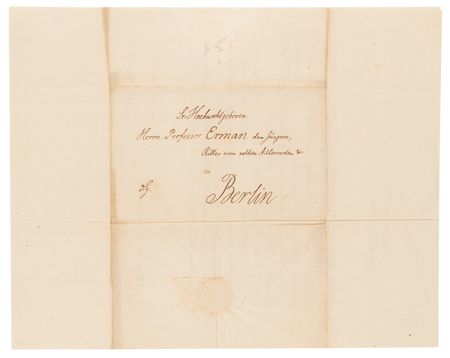 Sr. Hochwohlgeboren
Herrn Professor Erman dem Jüngern,
Ritter vom rothen Adlerorden &c.
zu
Berlin